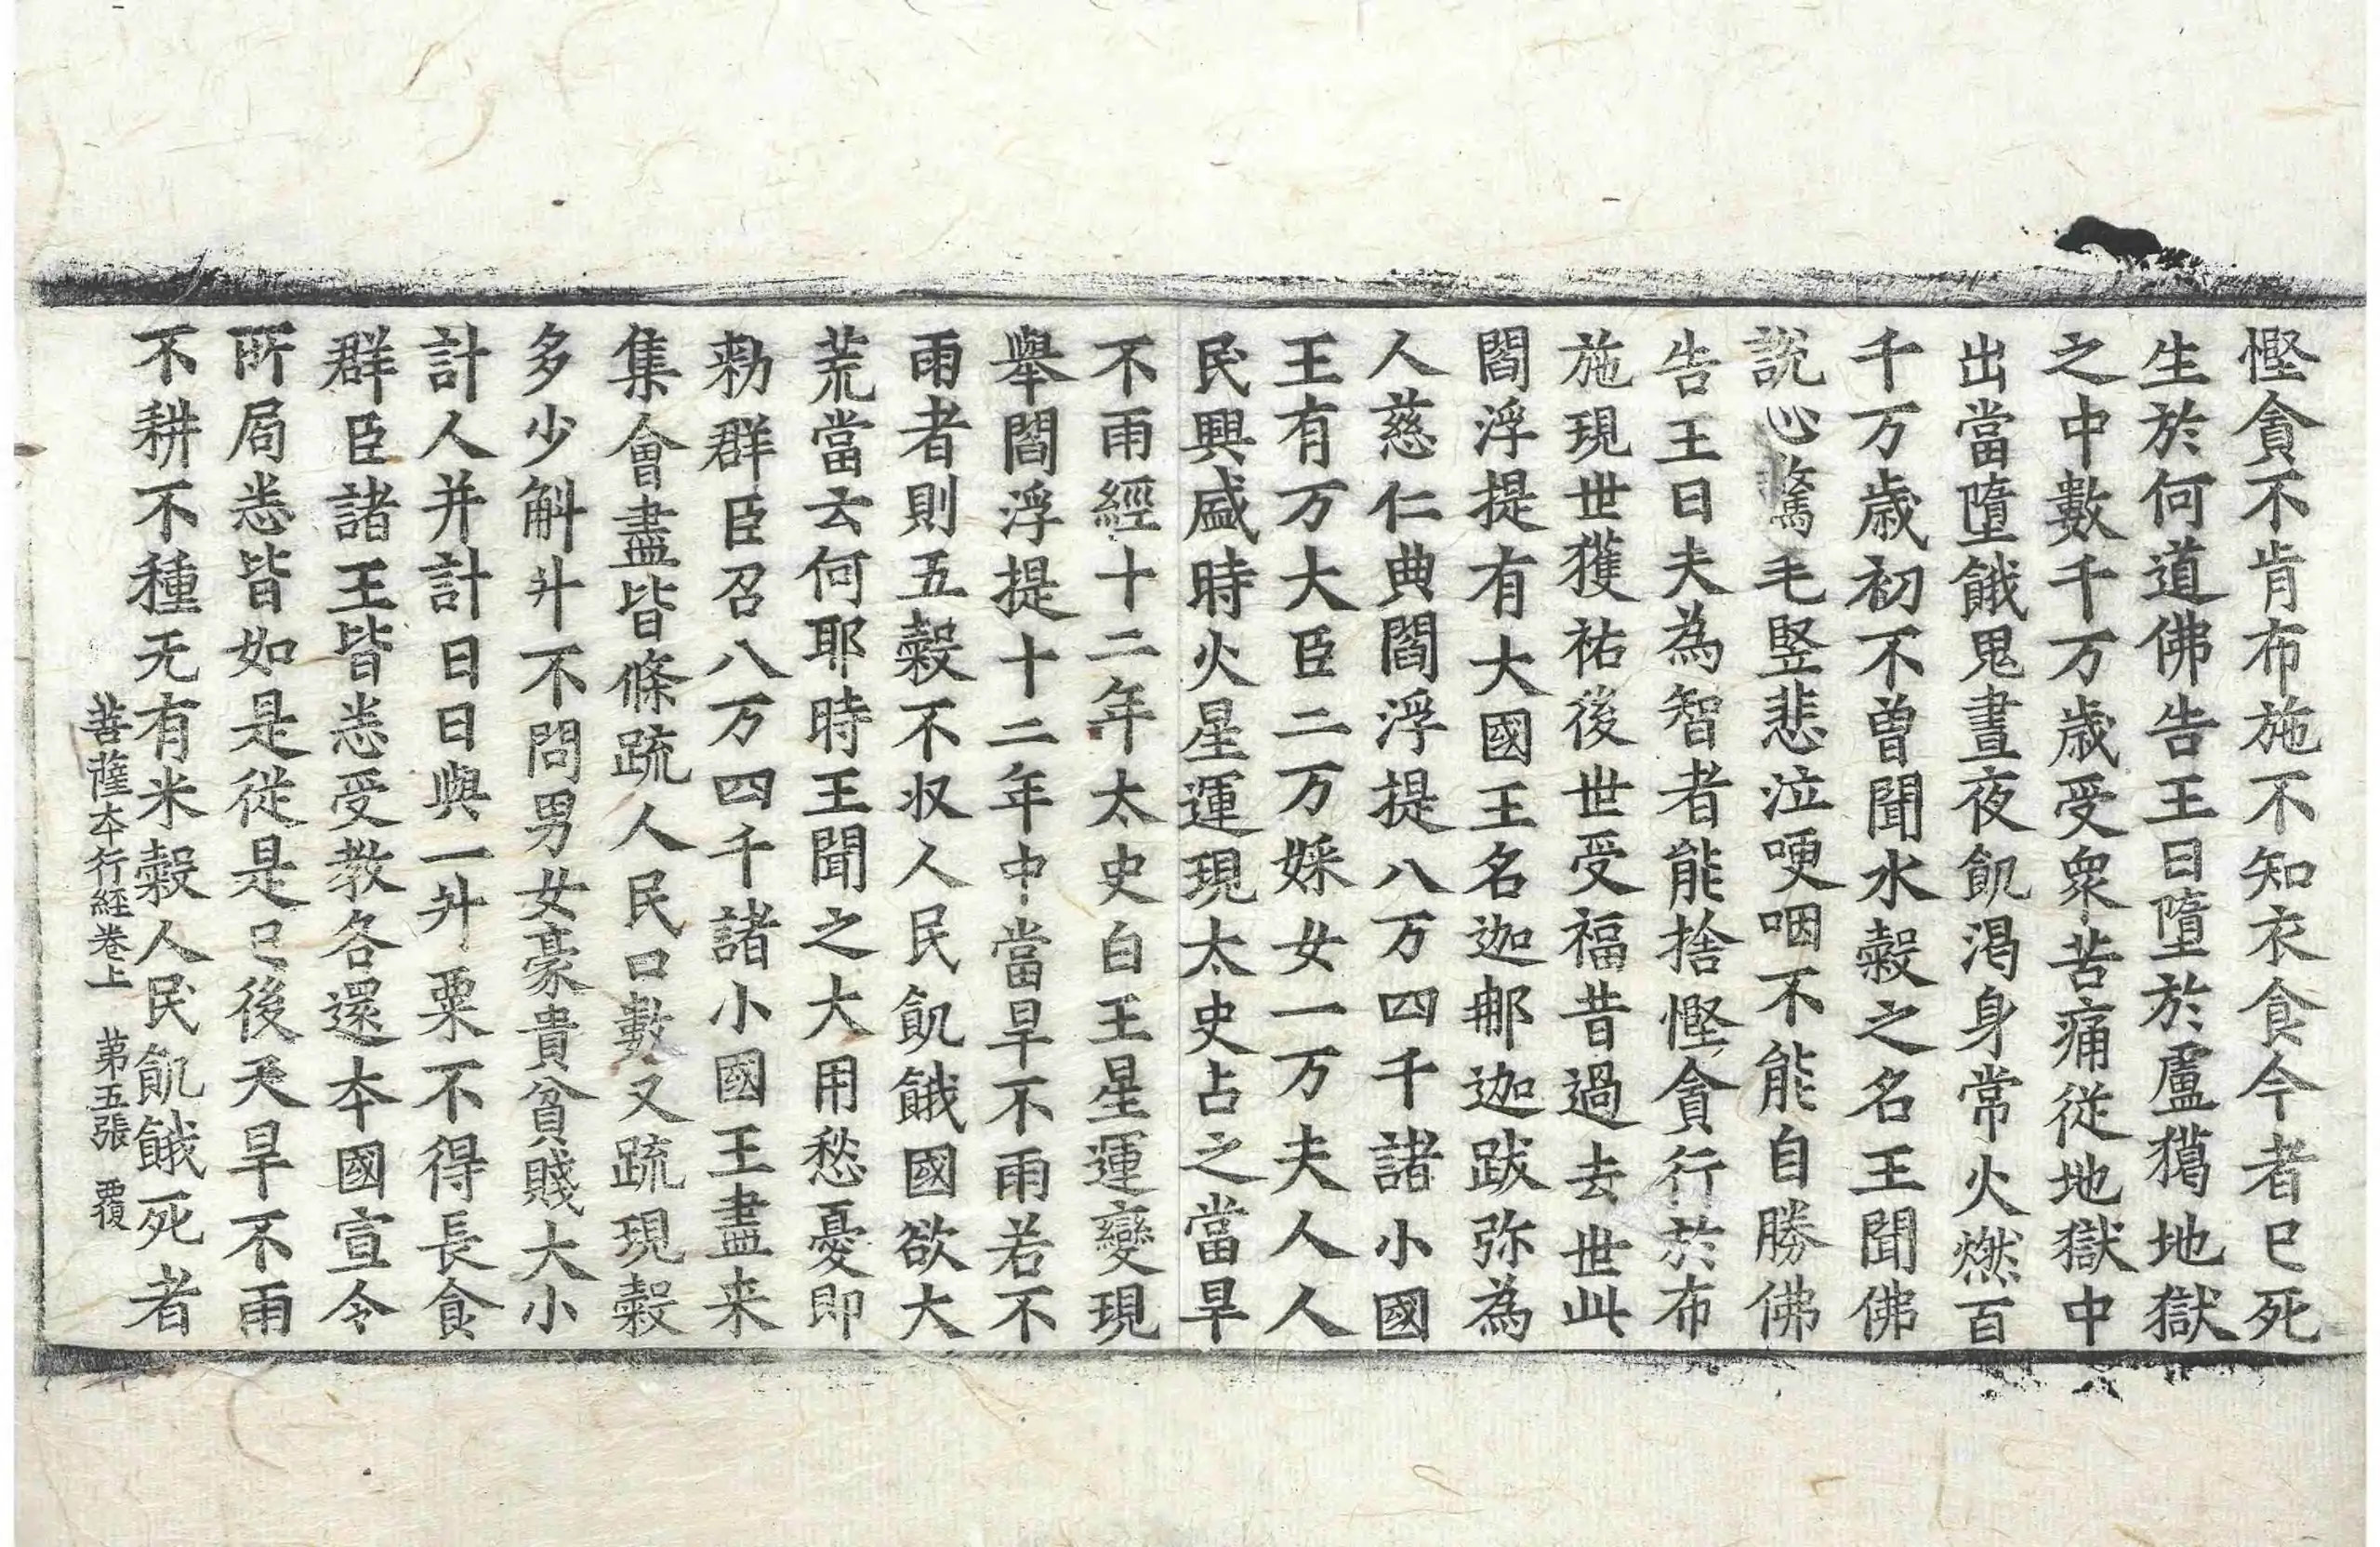 慳貪不肯布施不知衣食今者已死
生於何道佛告王曰墮於盧獦地獄
之中數千万歲受衆苦痛從地獄中
出當墮餓鬼晝夜飢渴身常火燃百
千万歲初不曾聞水穀之名王聞佛
說心驚毛竪悲泣哽咽不能自勝佛
告王曰夫為智者能捨慳貪行於布
施現世獲祐後世受福昔過去世此
閻浮提有大國王名迦䣯迦跋弥為
人慈仁典閻浮提八万四千諸小國
王有万大臣二万婇女一万夫人人
民興盛時火星運現太史占之當旱
不雨經十二年太史白王星運變現
舉閻浮提十二年中當旱不雨若不
雨者則五穀不収人民飢餓國欲大
荒當云何耶時王聞之大用愁憂即
勑群臣召八万四千諸小國王盡来
集會盡皆條疏人民口數又疏現穀
多少斛升不問男女豪貴貧賤大小
計人并計日日與一升粟不得長食
群臣諸王皆悉受教各還本國宣令
所局悉皆如是從是已後天旱不雨
不耕不種无有米穀人民飢餓死者
菩薩本行經卷上 第五張 覆